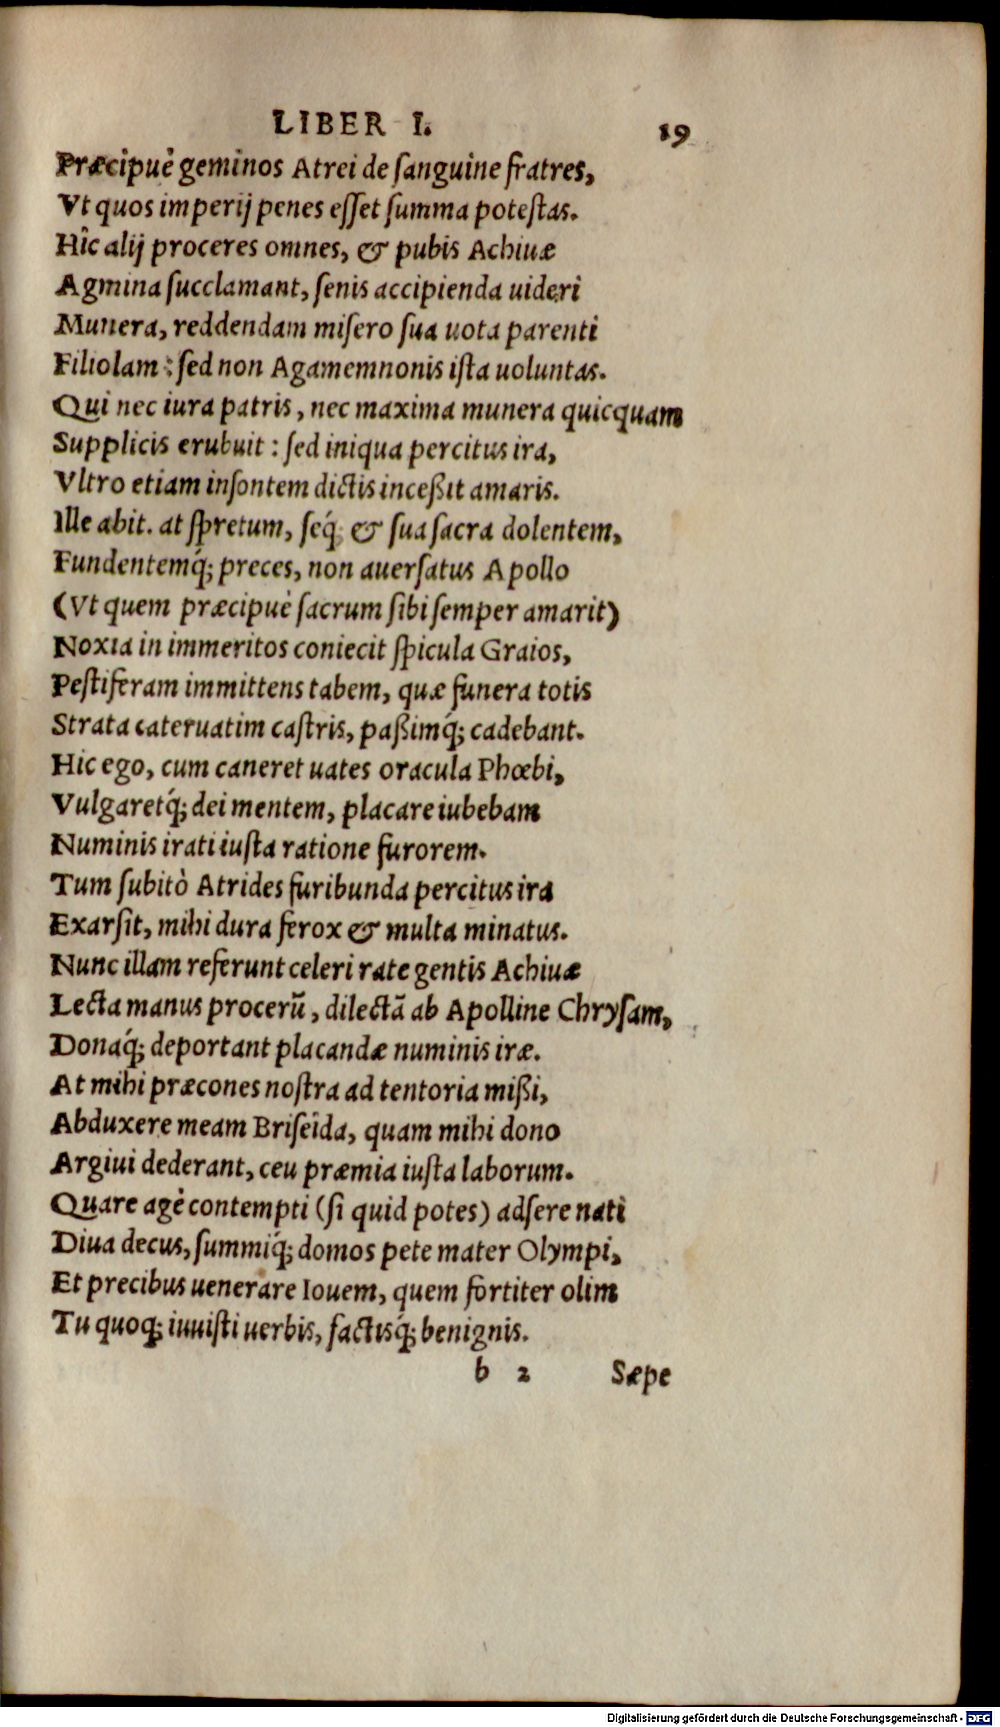 LIBER I. 19
Præcipuè geminos Atrei de ſanguine fratres,
Vt quos imperij penes eſſet ſumma poteſtas.
Hîc alij proceres omnes, & pubis Achiuæ
Agmina ſucclamant, ſenis accipienda uideri
Munera, reddendam miſero ſua uota parenti
Filiolam: ſed non Agamemnonis iſta uoluntas.
Qui nec iura patris, nec maxima munera quicquam
Supplicis erubuit: ſed iniqua percitus ira,
Vltro etiam inſontem dictis inceßit amaris.
Ille abit. at ſpretum, ſeq́; & ſua ſacra dolentem,
Fundentemq́; preces, non auerſatus Apollo
(Vt quem præcipuè ſacrum ſibi ſemper amarit)
Noxia in immeritos coniecit ſpicula Graios,
Peſtiferam immittens tabem, quæ funera totis
Strata cateruatim caſtris, paßimq́; cadebant.
Hic ego, cum caneret uates oracula Phœbi,
Vulgaretq́; dei mentem, placare iubebam
Numinis irati iuſta ratione furorem.
Tum ſubitò Atrides furibunda percitus ira
Exarſit, mihi dura ferox & multa minatus.
Nunc illam referunt celeri rate gentis Achiuæ
Lecta manus procerū, dilectā ab Apolline Chryſam,
Donaq́; deportant placandæ numinis iræ.
At mihi præcones noſtra ad tentoria mißi,
Abduxere meam Briſeida, quam mihi dono
Argiui dederant, ceu præmia iuſta laborum.
Quare agè contempti (ſi quid potes) adſere nati
Diua decus, ſummiq́; domos pete mater Olympi,
Et precibus uenerare Iouem, quem fortiter olim
Tu quoq; iuuiſti uerbis, factisq́; benignis.
b 2 Sæpe
Digitalisierung gefördert durch die Deutsche Forschungsgemeinschaft - DFG